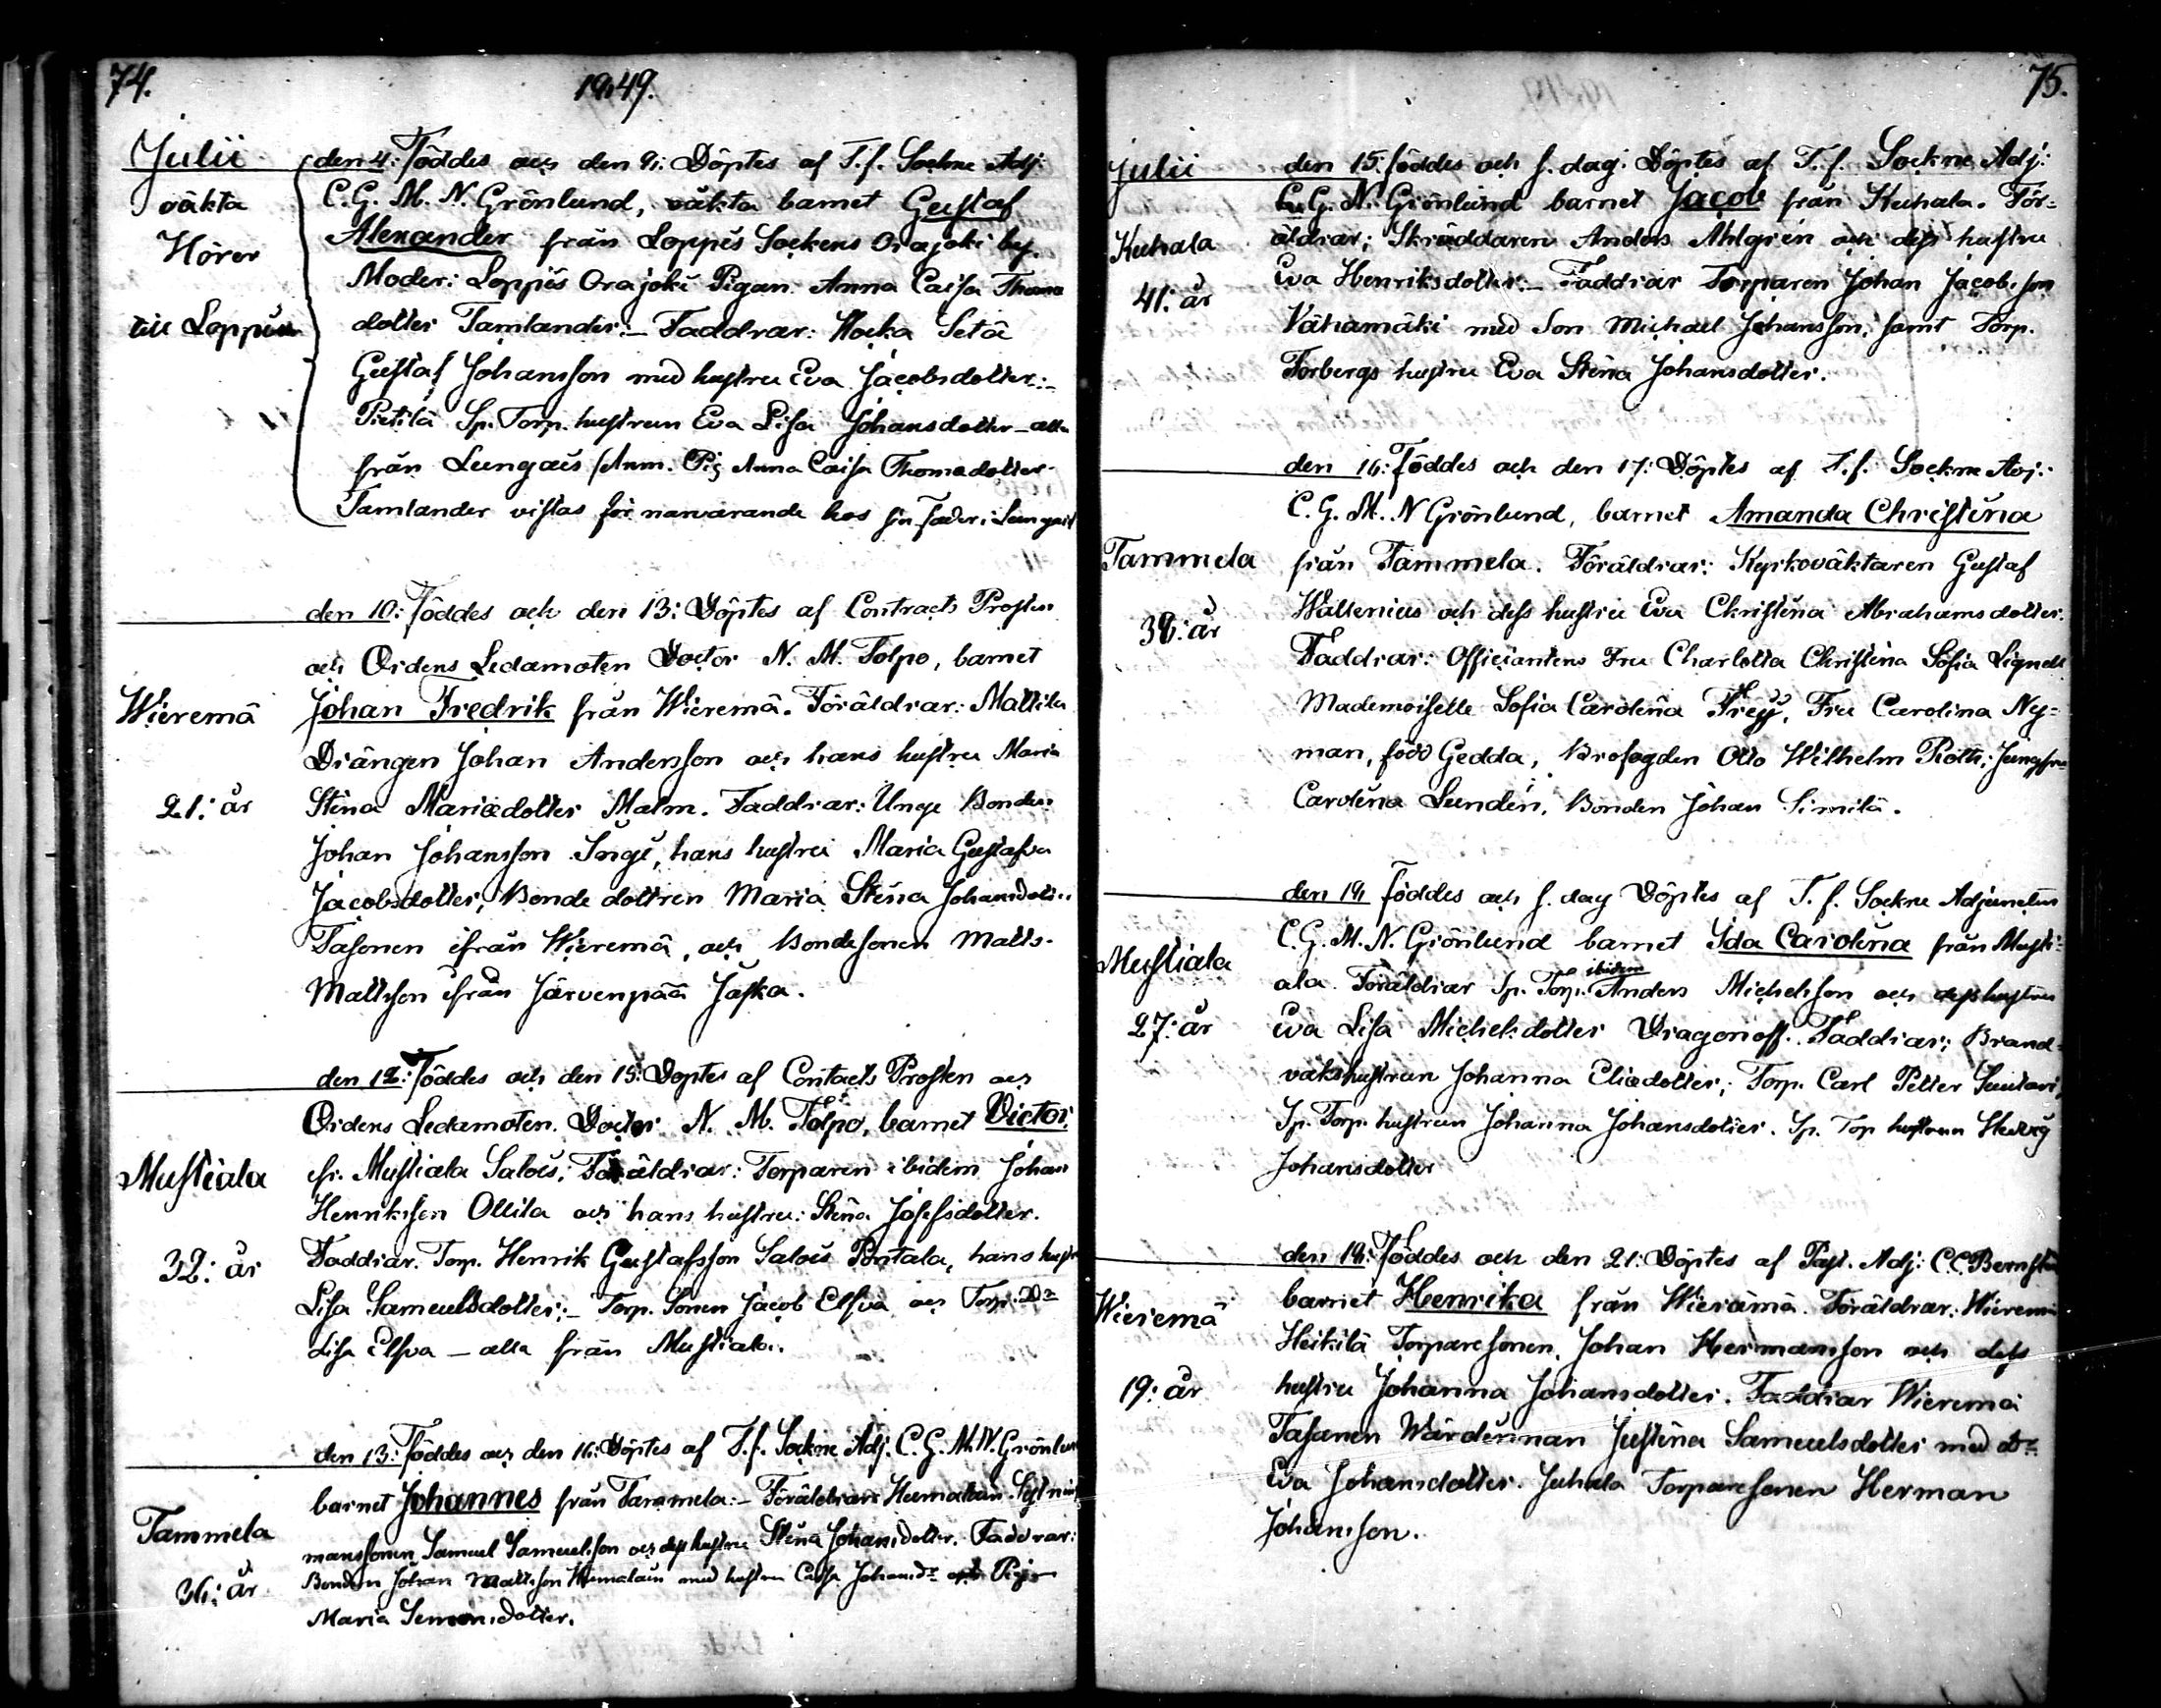 74.
1849.
Julii
oäkta
Hörer
till Loppis
den 4: Föddes och den 9: Döptes af T.f. Sockne Adj:
C.G.M.N. Grönlund, oäkta barnet Gustaf
Alexander från Loppis Sockens Orajoki by.
Moder: Loppis Orajoki Pigan Anna Caisa Thoma
dotter Tamlander:- Faddrar: Kocka Setä
Gustaf Johansson med hustru Eva Jacobsdotter:-
Pietilä Sp. Torp. hustrun Eva Lisa Johansdotter - alla
från Lungais (Anm. Pig. Anna Caisa Thomadotter
Tamlander vistas för närvarande hos sin fader i Lungais
Wieremä
21: år
den 10: Föddes och den 13: Döptes af Contracts Prosten
och Ordens Ledamoten Doctor N. M. Tolpo, barnet
Johan Fredrik från Wieremä. Föräldrar: Mattila
Drängen Johan Andersson och hans hustru Maria
Stina Mariædotter Malm. Faddrar: Unge Bonden
Johan Johansson Inge, hans hustru Maria Gustafva
Jacobsdotter, Bonde dottren Maria Stina Johansdotter
Tasonen ifrån Wieremä, och Bondesonen Matts
Mattsson ifrån Järvenpää Jaska.
Mustiala
32: år
den 12: Föddes och den 15: Döptes af Contracts Prosten och
Ordens Ledamoten Doctor N. M. Tolpo, barnet Victor,
fr. Mustiala Salois; Föräldrar: Torparen ibidem Johan
Henriksson Ollila och hans hustru: Stina Josefsdotter.
Faddrar. Torp. Henrik Gustafsson Salois Pontala, hans hustr
Lisa Samuelsdotter;- Torp. Sonen Jacob Elfva och Torp. Dr
Lisa Elfva - alla från Mustiala.
Tammela
36: år
den 13: Föddes och den 16: Döptes af T.f. Sockne Adj. C.G.M.N. Grönlund
barnet Johannes från Tammela:- Föräldrar: Hemalain
manssonen Samuel Samuelsson och dess hustru Stina Johansdotter. Faddrar:
Bonden Johan Mattsson med hustru Caisa Johansdr och Pigan
Maria Simonsdotter.
75.
Julii
Kuhala
41: år
den 15: föddes och s. dag: Döptes af T.f. Sockne Adj:
C.G.N. Grönlund barnet Jacob från Kuhala. För-
äldrar; Skräddaren Anders Ahlgrén och dess hustru
Eva Henriksdotter:- Faddrar Torparen Johan Jacobsson
Vähamäki med Son Michael Johansson, samt Torp.
Forbergs hustru Eva Stina Johansdotter.
Tammela
38: år
den 16: Föddes och den 17: Döptes af T.f. Sockne Adj:
C.G.M.N Grönlund, barnet Amanda Christina
från Tammela. Föräldrar: Kyrkoväktaren Gustaf
Wallenius och dess hustru Eva Christina Abrahamsdotter.
Faddrar: Officiantens Fru Charlotta Christina Sofia Lignell
Mademoiselle Sofia Carolina Frey, Fru Carolina Ny-
man, född Gedda, Brofogden Otto Wilhelm Roth, Jungfru
Carolina Lundén, Bonden Johan Simila.
Mustiala
27: år
den 19 föddes och s. dag Döptes af T.f. Sockne Adjuncten
C.G.M.N. Grönlund barnet Ida Carolina från Musti-
ala. Föräldrar Sp. Torp. ibidem Anders Michelsson och dess hustru
Eva Lisa Michelsdotter Dragonoff. Faddrar; Brand-
vakshustrun Johanna Eliædotter; Torp. Carl Petter Suutari,
Sp. Torp. hustrun Johanna Johansdotter. Sp. Torp hustrun Hedvig
Johansdotter
Wieremä
19: år
den 19: Föddes och den 21: Döptes af Past. Adj: C.C. Bernsten
barnet Henrika från Wierämä. Föräldrar: Wieremä
Heikilä Torparesonen Johan Hermansson och dess
hustru Johanna Johansdotter. Faddrar Wieremä
Tasanen Wärdinnan Justina Samuelsdotter med dr
Eva Johansdotter. Juhala Torparesonen Herman
Johansson.